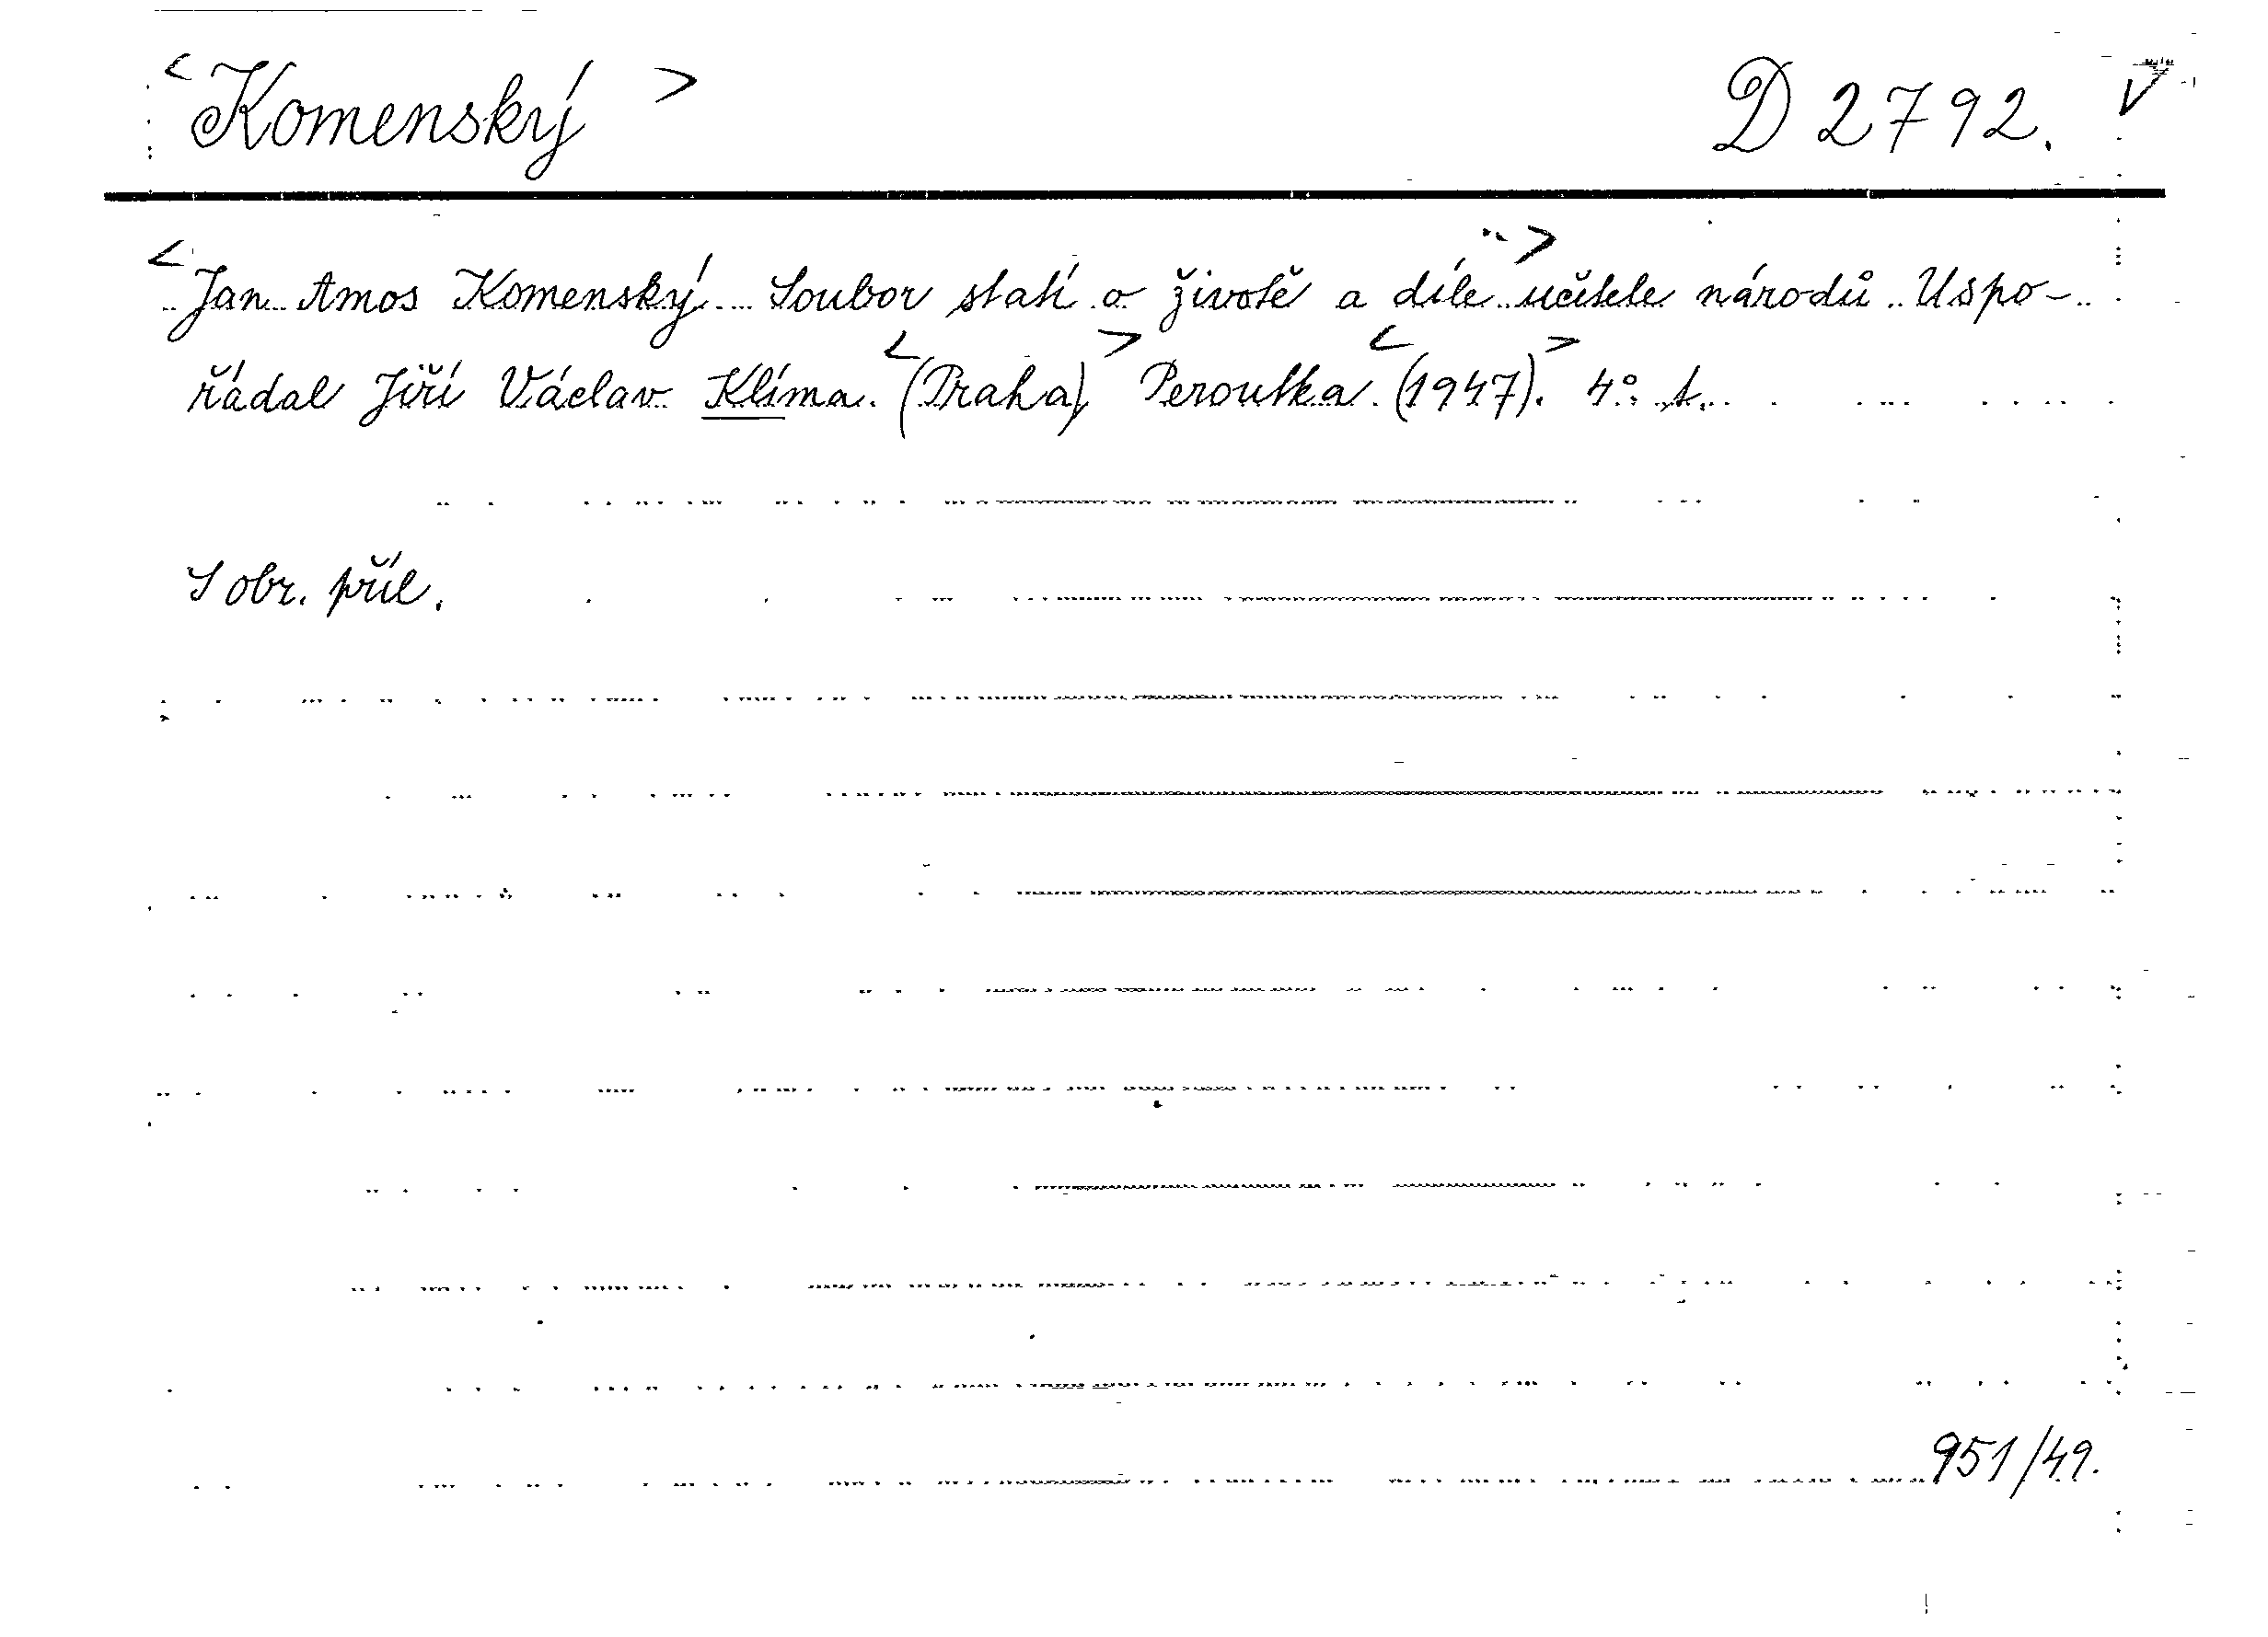 <Komenský> D 2792. V
<Jan Amos Komenský. Soubor statí o životě a díle> učitele národů. Uspo-
řádal Jiří Václav Klíma. <(Praha)> Peroutka. <(1947).> 4°.
S obr. příl.
951/49.